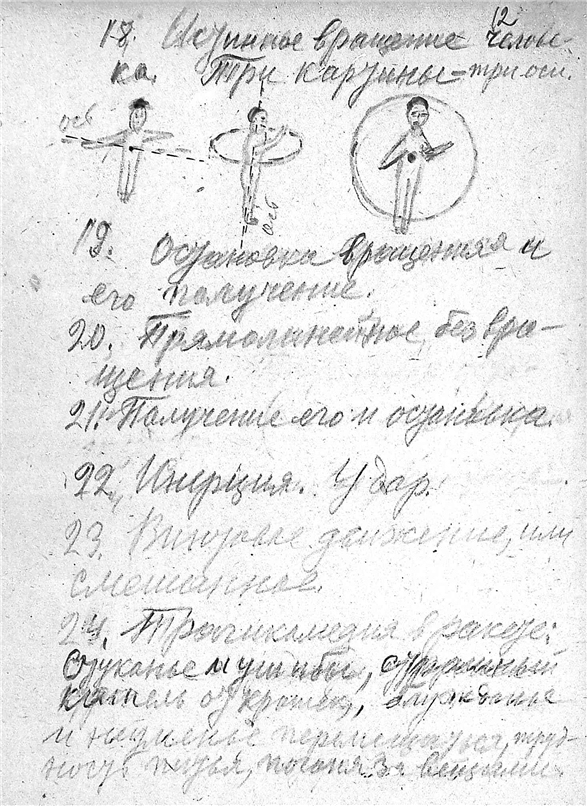 12
18. Истинное вращение челове-
ка. Три картины – три оси.
ось
ось
19. Остановка вращения и
его получение.
20. Прямолинейное, без вра-
щения.
21. Получение его и остановка.
22. Инерция. Удар.
23. Винтовое движение, или
смешанное.
24. Трагикомедия в ракете:
Стуканье и ушибы,
кашель от крошек, блужданье
и неуменье перемещаться, труд-
ность питья, погоня за вещами.